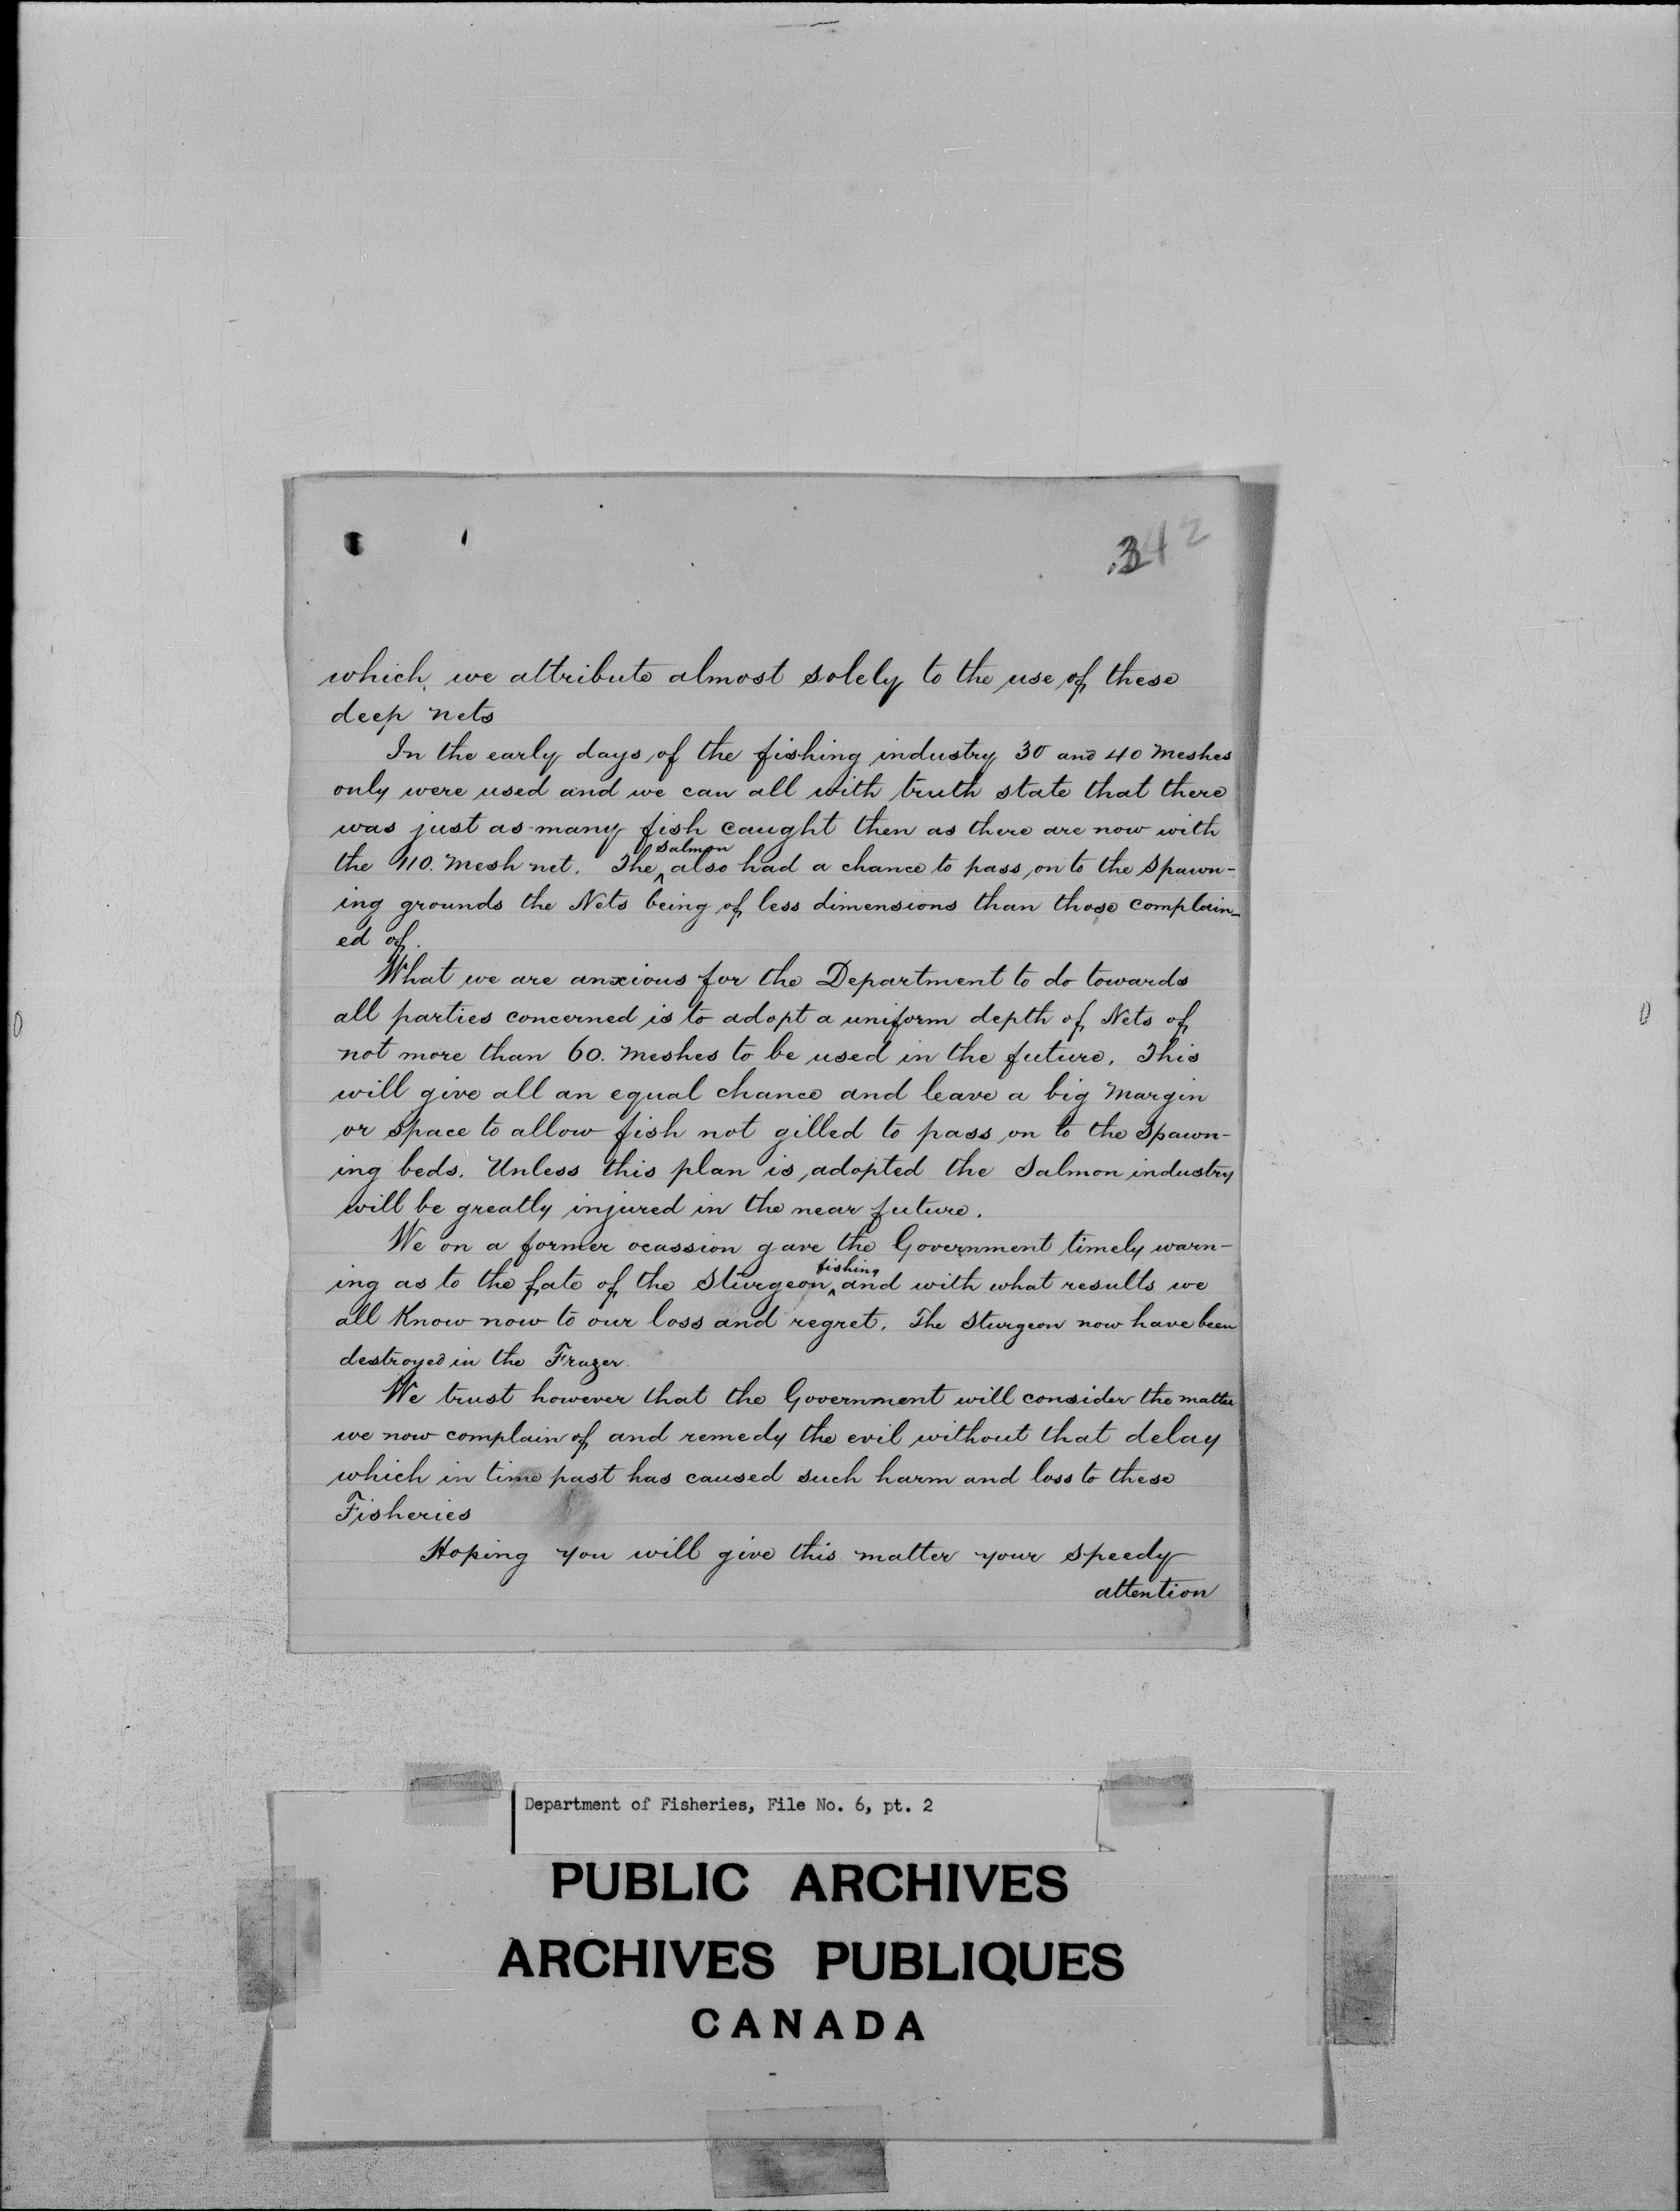 342
which we attribute almost solely to the use of these
deep nets
In the early days of the fishing industry 30 and 40 meshes
only were used and we can all with truth state that there
was just as many fish caught then as there are now with
the 110. mesh net. The ^salmon also had a chance to pass on to the spawn-
ing grounds the Nets being of less dimensions than those complain-
ed of.
What we are anxious for the Department to do towards
all parties concerned is to adopt a uniform depth of Nets of
not more than 60. meshes to be used in the future. This
will give all an equal chance and leave a big margin
or space to allow fish not gilled to pass on to the spawn-
ing beds. Unless this plan is adopted the Salmon industry
will be greatly injured in the near future.
We on a former ocassion gave the Government timely warn-
ing as to the fate of the Sturgeon ^fishing and with what results we
all Know now to our loss and regret. The Sturgeon now have been
destroyed in the Frazer.
We trust however that the Government will consider the matter
we now complain of and remedy the evil without that delay
which in time past has caused such harm and loss to these
Fisheries
Hoping you will give this matter your speedy
attention
Department of Fisheries, File No. 6, pt. 2
PUBLIC ARCHIVES
ARCHIVES PUBLIQUES
CANADA